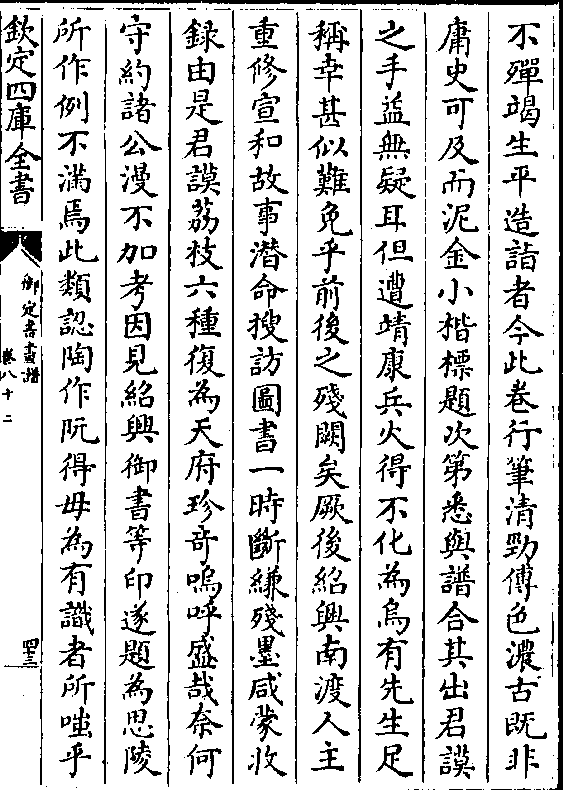 不殫竭生平造詣者今此卷行筆清勁傅色濃古既非
庸史可及而泥金小楷標題次第悉與譜合其出君謨
之手益無疑耳但遭靖康兵火得不化為烏有先生足
稱幸甚似難免乎前後之殘闕矣厥後紹興南渡人主
重修宣和故事潛命搜訪圖書一時斷縑殘墨咸蒙收
録由是君謨荔枝六種復為天府珍竒嗚呼盛哉奈何
守約諸公漫不加考因見紹興御書等印遂題為思陵
所作例不滿焉此類認陶作阮得毋為有識者所嗤乎
欽定四庫全書
御定書畫譜
卷八十二
四三